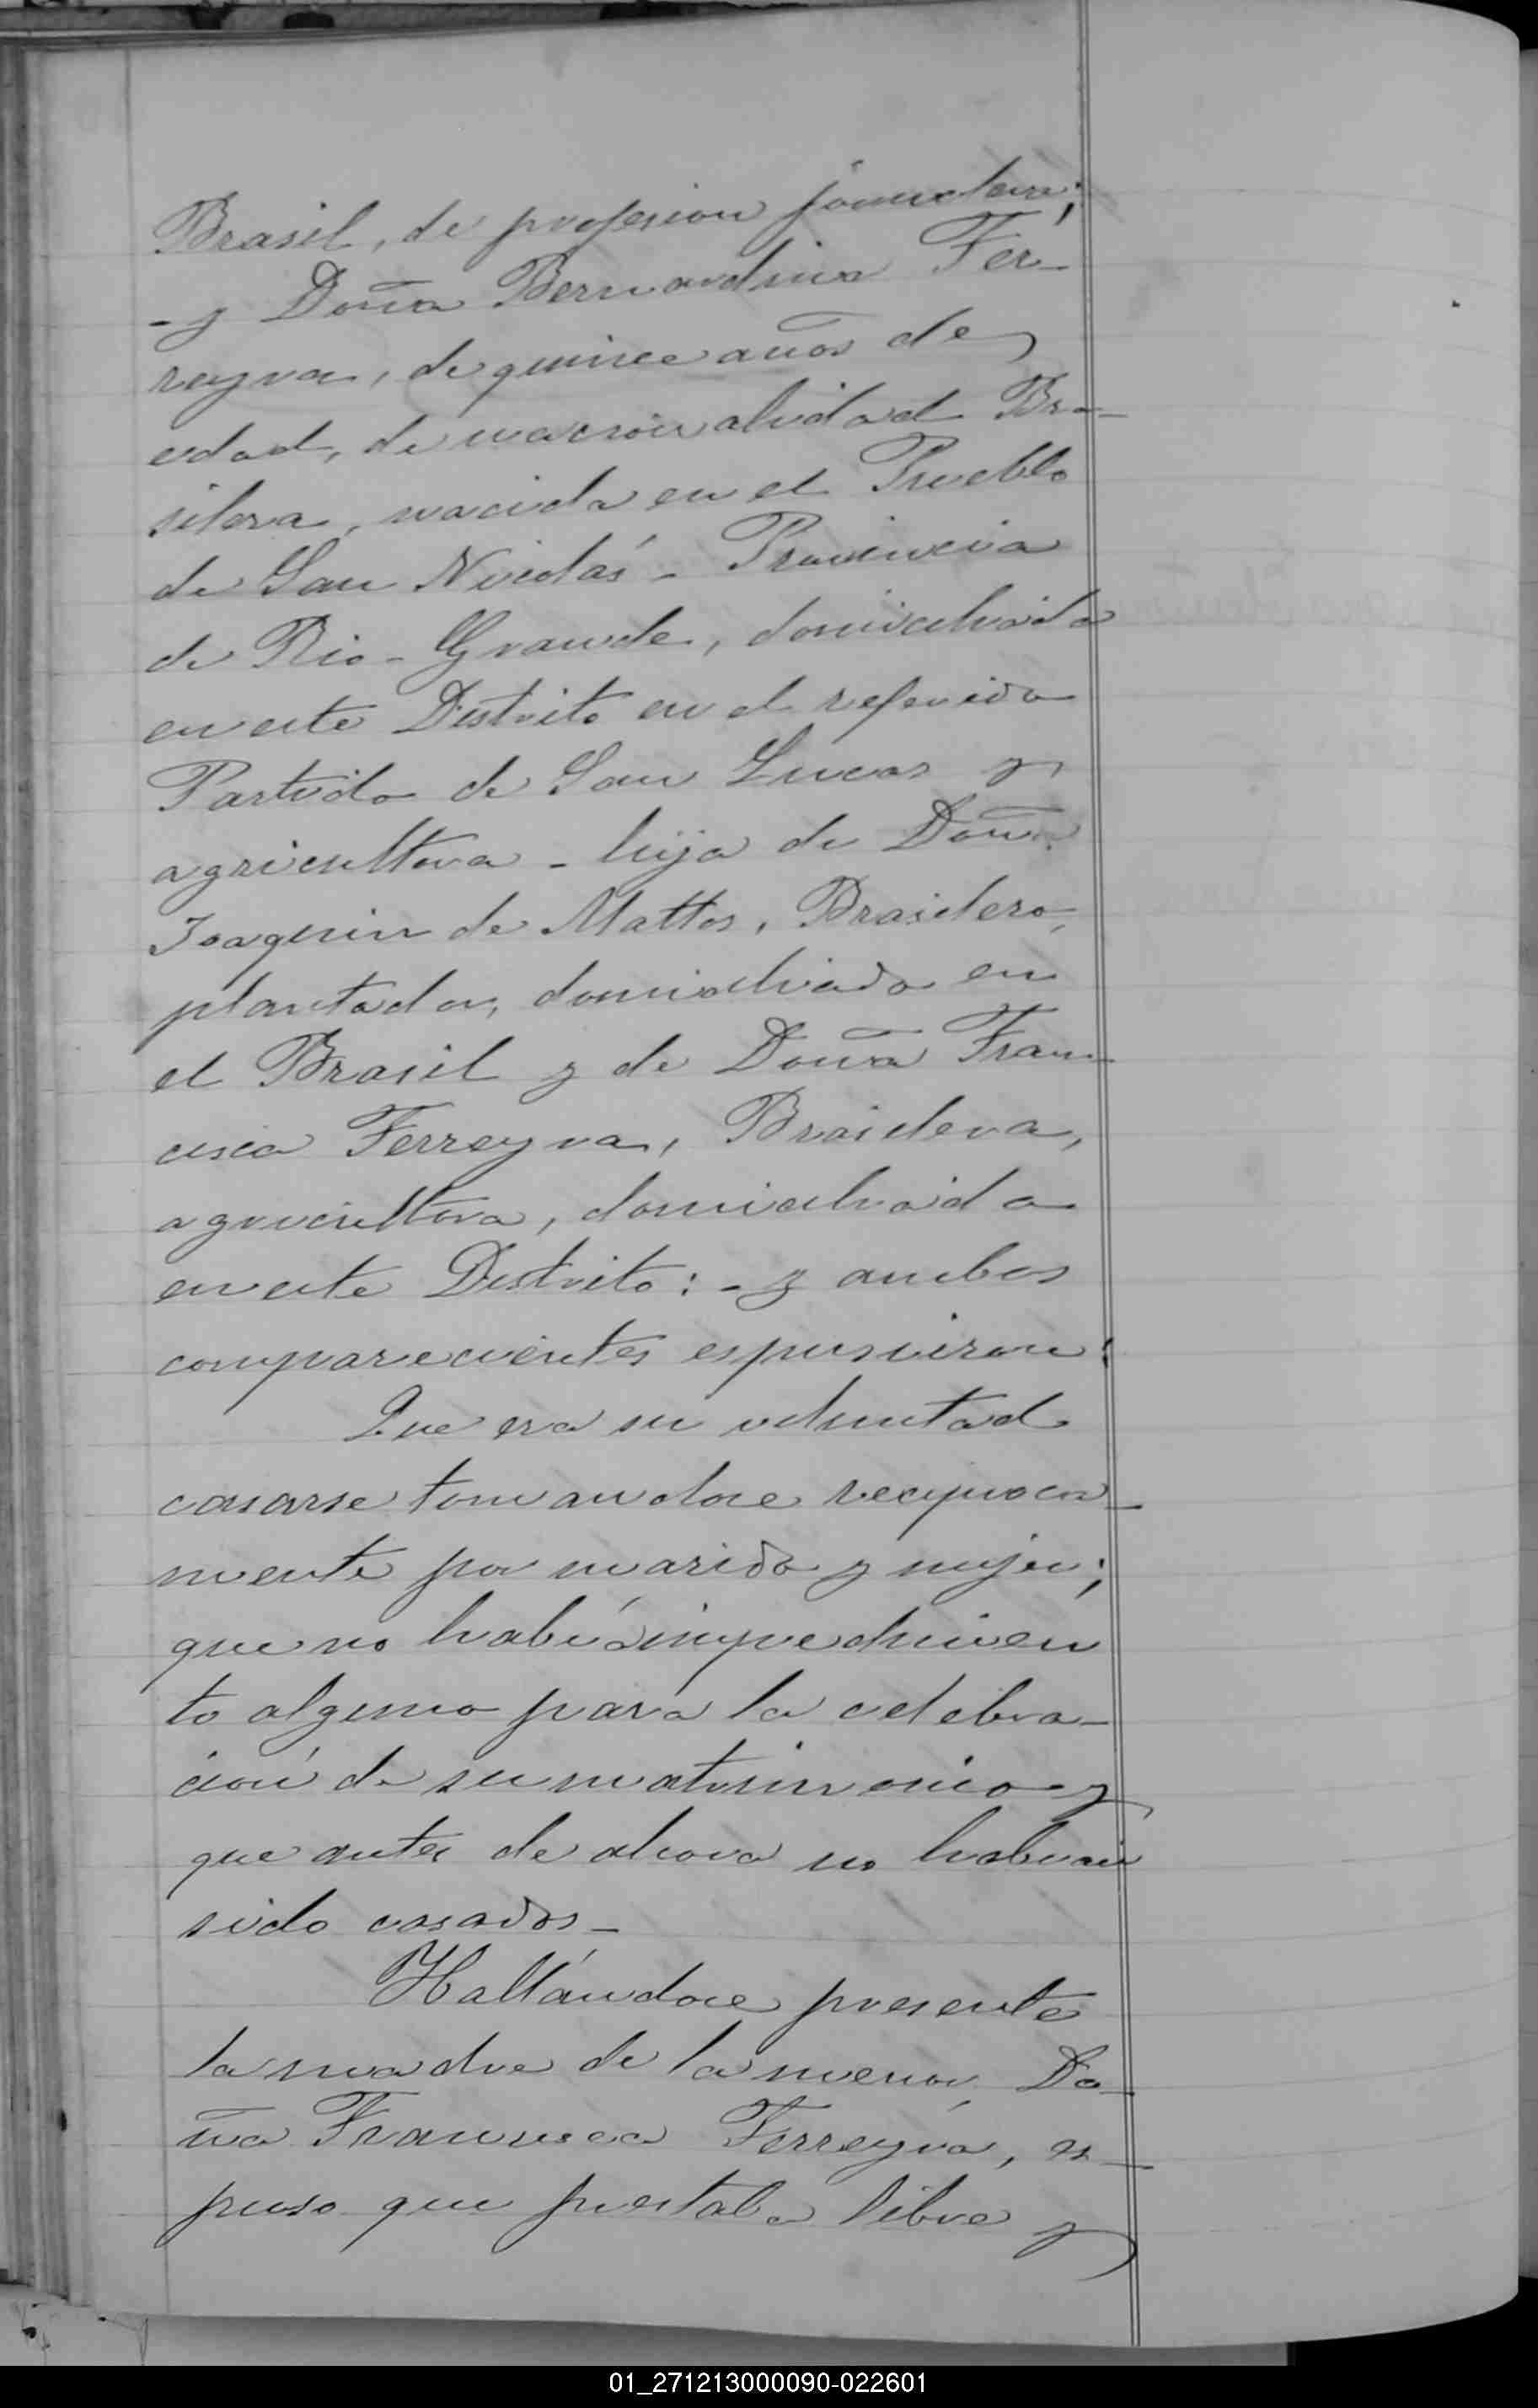 Brasil, de profesion jornalera;
- y Doña Bernardina Fer-
reyra, de quince años de
edad, de nacionalidad Bra-
silera, nacida en el Pueblo
de San Nicolás - Provincia
de Rio-Grande, domiciliada
en este Distrito en el referido
Partido de San Lucas y
agricultora - hija de Don
Joaquin de Mattos, Brasilero,
plantador, domiciliado en
el Brasil y de Doña Fran-
cisca Ferreyra, Brasilera,
agricultora, domiciliada
en este Distrito: - y ambos
comparecientes espusieron:
Que era su voluntad
casarse tomandose reciproca-
mente por marido y mujer;
que no había impedimien
to alguno para la celebra-
ción de su matrimonio y
que antes de ahora no habian
sido casados -
Hallándose presente
la madre de la menor, Do-
ña Francisca Ferreyra, es-
puso que prestaba libre y
01_271213000090-022601